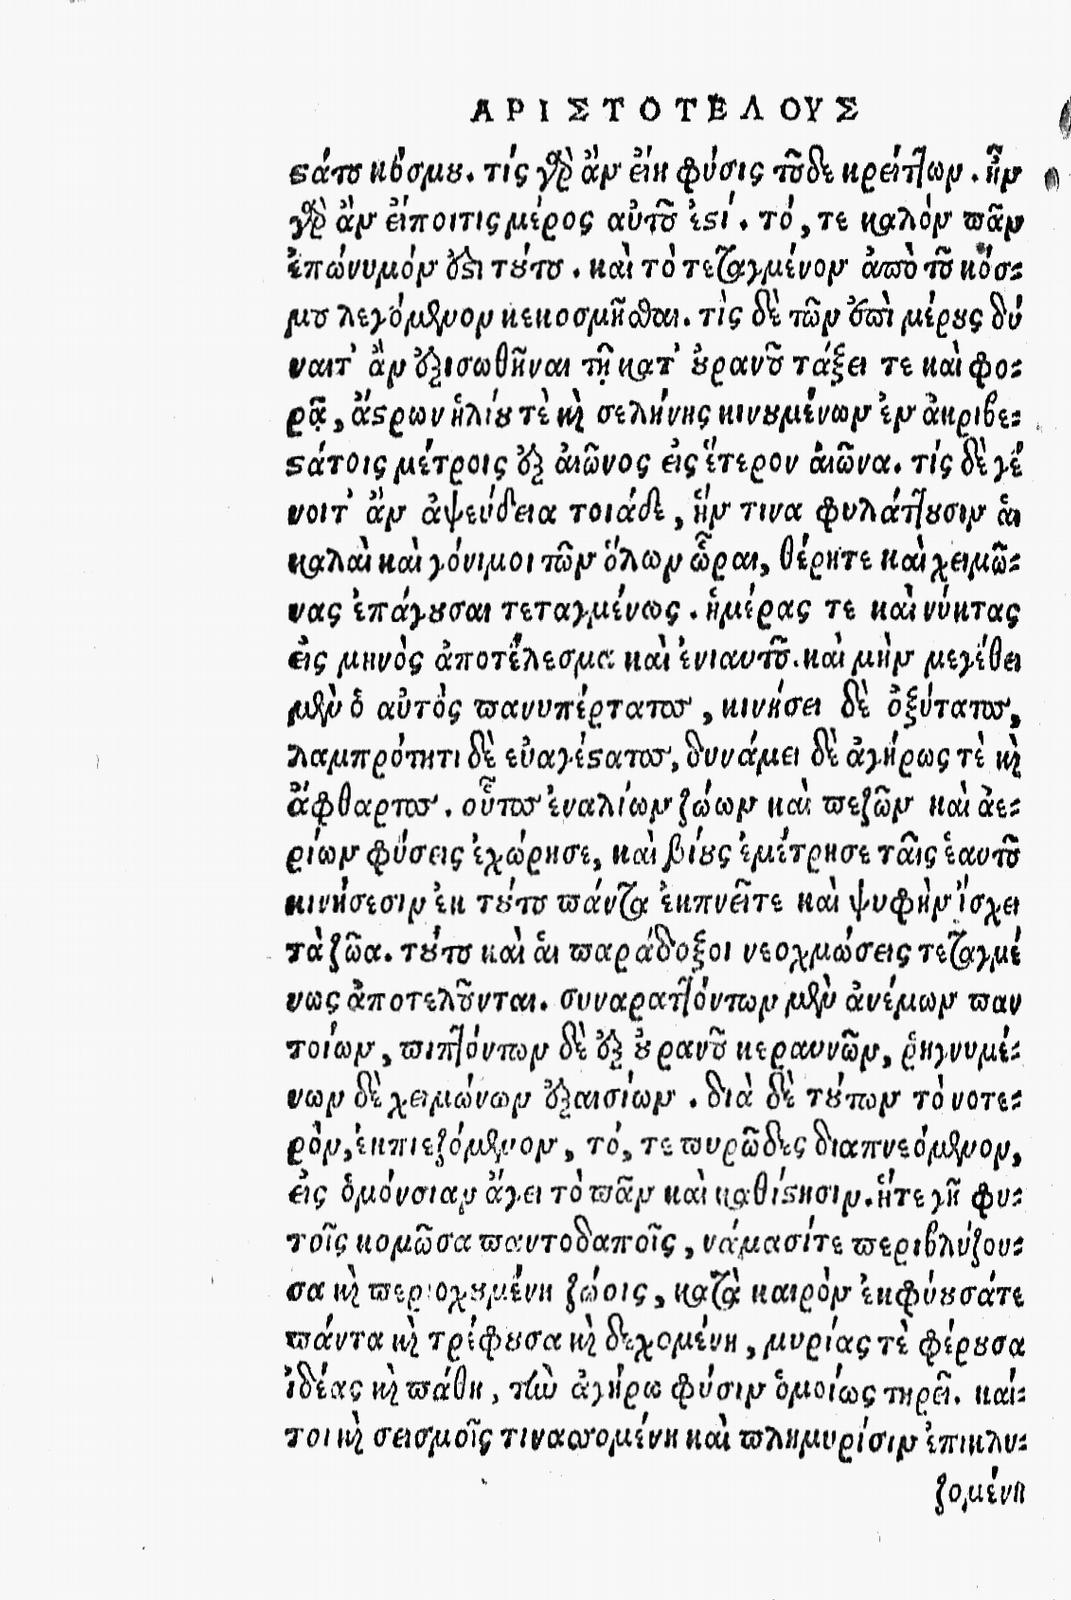 ΑΡΙΣΤΟΤΕΛΟΥΣ
στάτου κόσμου. τίς γὰρ ἂν εἴη φύσις τοῦδε κρείττων. ἣν
γὰρ ἂν εἴποιτις μέρος αὐτοῦ ἐστί. τό, τε καλὸν πᾶν
ἐπώνυμόν ὅστι τούτου. καὶ τὸ τεταγμένον ἀπὸ τοῦ κόσ-
μου λεγόμενον κεκοσμῆσθαι. τὶς δὲ τῶν ἐπὶ μέρους δύ
ναιτ' ἂν ἐξισωθῆναι τῇ κατ' οὐρανοῦ τάξει τε καὶ φο-
ρᾷ, ἄστρων ἡλίου τὲ καὶ σελήνης κινουμένων ἐν ἀκριβε-
στάτοις μέτροις ἐξ αἰῶνος εἰς ἕτερον αἰῶνα. τίς δὲ γέ
νοιτ' ἂν ἀψεύδεια τοιάδε, ἥν τινα φυλάττουσιν αἱ
καλαὶ καὶ γόνιμοι τῶν ὅλων ὧραι, θέρητε καὶ χειμῶ-
νας ἐπάγουσαι τεταγμένως. ἡμέρας τε καὶ νύκτας
εἰς μηνὸς ἀποτέλεσμα καὶ ἐνιαυτοῦ. καὶ μὴν μεγέθει
μὲν ὁ αὐτὸς πανυπέρτατος, κινήσει δὲ ὀξύτατος,
λαμπρότητι δὲ εὐαγέστατος, δυνάμει δὲ ἀγήρως τὲ καὶ
ἄφθαρτος. οὗτος ἐναλίων ζώων καὶ πεζῶν καὶ ἀε-
ρίων φύσεις ἐχώρησε, καὶ βίους ἐμέτρησε ταῖς ἑαυτοῦ
κινήσεσιν ἐκ τούτου πάντα ἐκπνεῖτε καὶ ψυφὴν ἴσχει
τὰ ζῶα. τούτου καὶ αἱ παράδοξοι νεοχμώσεις τεταγμέ
νως ἀποτελοῦνται. συναραττόντων μὲν ἀνέμων παν
τοίων, πιπτόντων δὲ ἐξ οὐρανοῦ κεραυνῶν, ῥηγνυμέ-
νων δὲ χειμώνων ἐξαισίων. διὰ δὲ τούτων τὸ νοτε-
ρὸν, ἐκπιεζόμενον, τό, τε πυρῶδες διαπνεόμενον,
εἰς ὁμόνοιαν ἄγει τὸ πᾶν καὶ καθίστησιν. ἥτε γῆ φυ-
τοῖς κομῶσα παντοδαποῖς, νάμασίτε περιβλύζου-
σα καὶ περιοχουμένη ζώοις, κατὰ καιρὸν ἐκφύουσάτε
πάντα καὶ τρέφουσα καὶ δεχομένη, μυρίας τὲ φέρουσα
ἰδέας καὶ πάθη, τὴν ἀγήρω φύσιν ὁμοίως τηρεῖ. καί-
τοι καὶ σεισμοῖς τινασσομένη καὶ πλημυρίσιν ἐπικλυ-
ζομένη